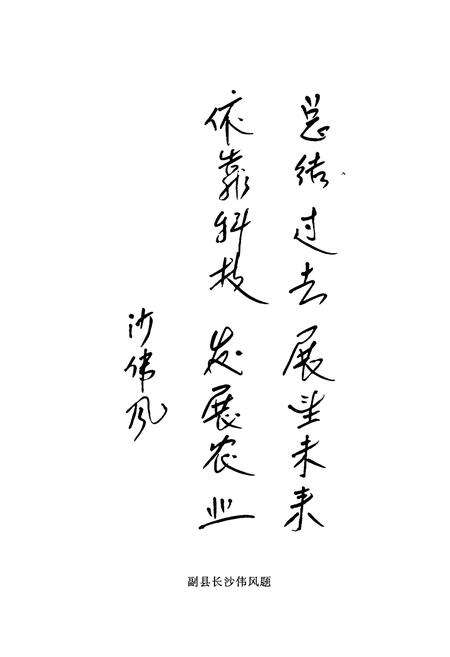 总结过去 展望未来
依靠科技 发展农业
沙伟风
副县长沙伟风题